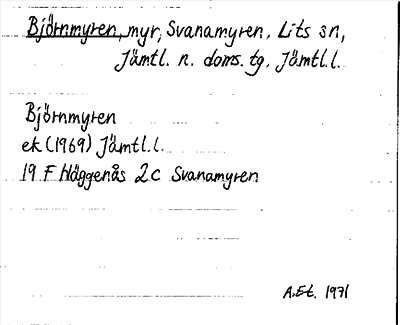 Björnmyren, myr, Svanamyren, Lits sn,
Jämtl. n. doms. tg. Jämtl.l.
Björnmyren
ek (1969) Jämtl.l.
19 F Häggenås 2c Svanamyren
A.Et. 1971